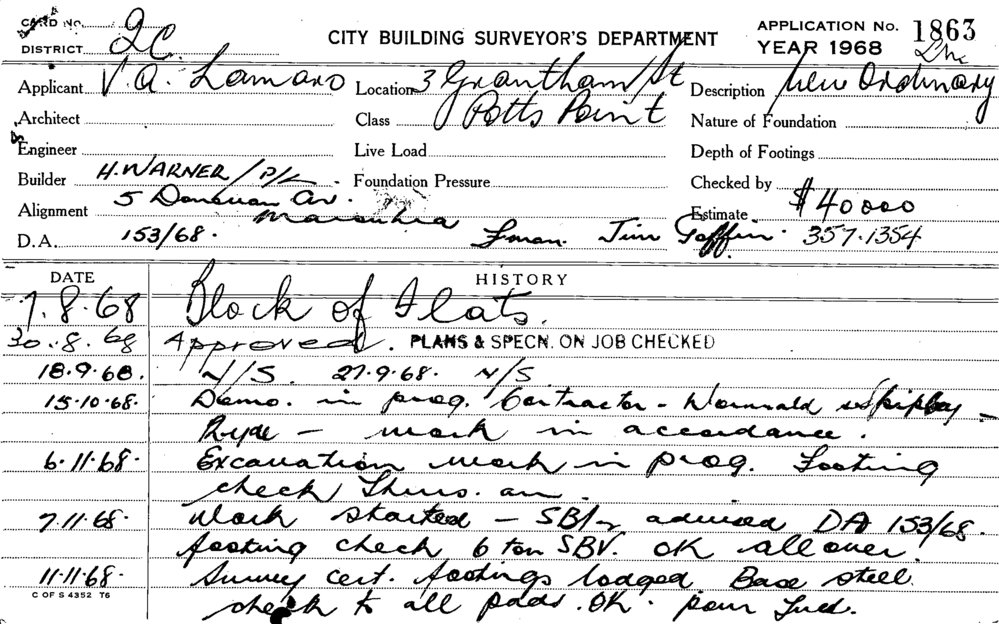 CARD No.
DISTRICT 2C.
CITY BUILDING SURVEYOR'S DEPARTMENT
APPLICATION No. 1863
YEAR 1968
Applicant V. A. Lamaro
Location 3 Grantham St
Description New Ordinary
Architect
Class Potts Point
Nature of Foundation
Engineer
Live Load
Depth of Footings
Builder H. WARNER P/L.
Foundation Pressure
Checked by
Alignment 5 Donovan Av. Maroubra
Estimate $40000
D.A. 153/68. Fman. Jim 357.1354
DATE HISTORY
7.8.68 Block of Flats.
30.8.68 Approved. PLANS & SPECN. ON JOB CHECKED
18.9.68. N/S. 27.9.68. N/S
15.10.68. Demo. in prog. Contractor -
Ryde - work in accordance.
6.11.68. Excavation work in prog. Footing
check Thurs. am.
7.11.68. Work started - advised DA 153/68.
footing check 6 ton SBV. OK all over.
11.11.68. Survey cert. footings lodged. Base steel
check to all pads. OK. pour Tued.
C OF S 4352 T6